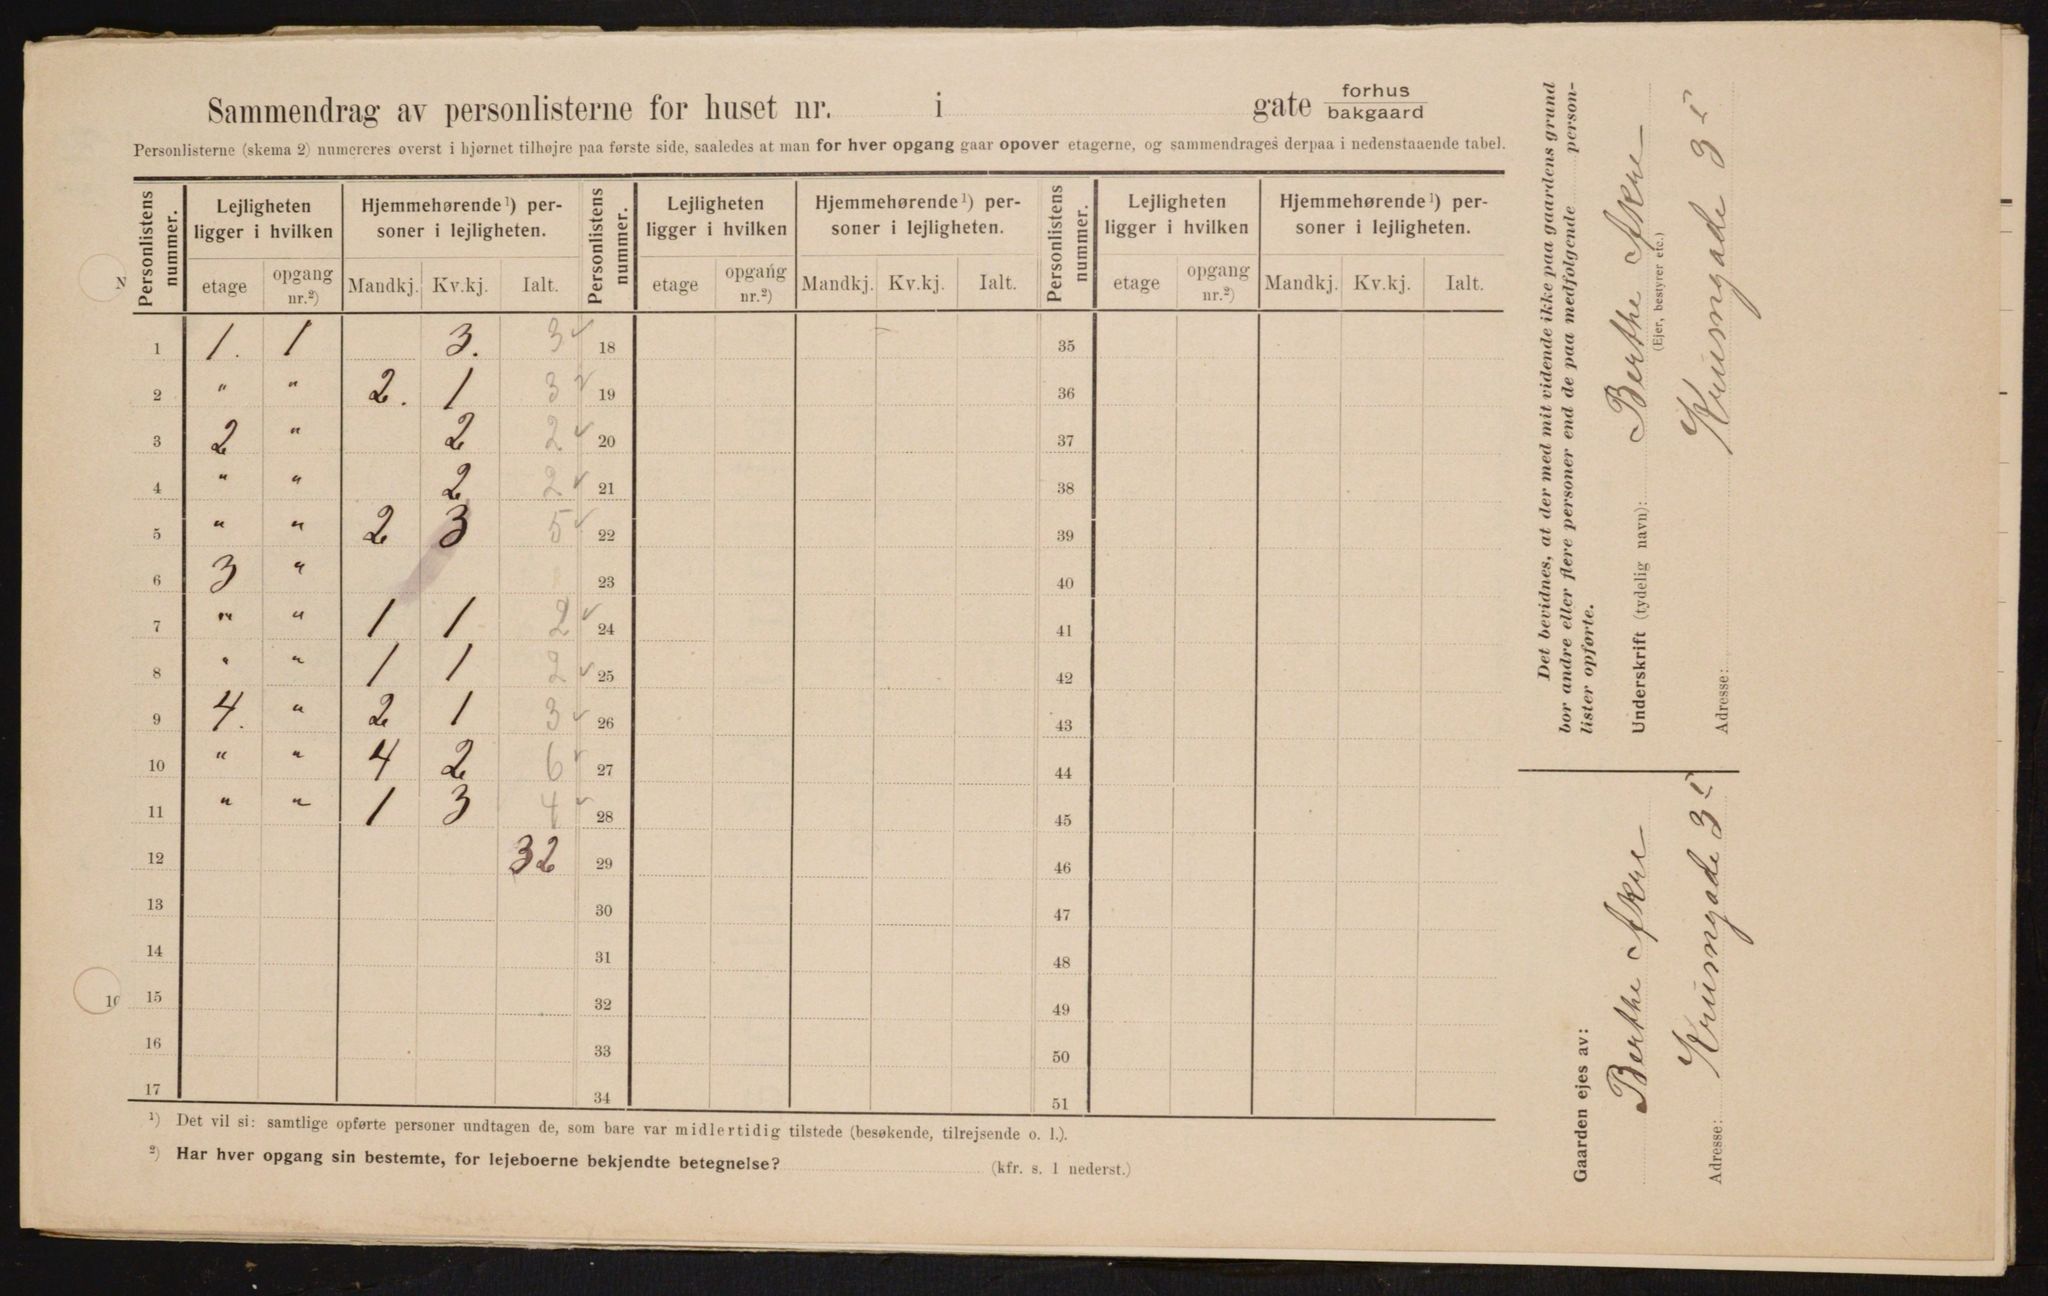 Sammendrag av personlisterne for huset nr. i gate forhus bakgaard
Personlisterne (skema 2) numereres øverst i hjørnet tilhøjre paa første side, saaledes at man for hver opgang gaar opover etagerne, og sammendrages derpaa i nedenstaaende tabel.
Personlistens nummer. Lejligheten ligger i hvilken Hjemmehørende ¹) personer i lejligheten. Personlistens nummer. Lejligheten ligger i hvilken Hjemmehørende ¹) personer i lejligheten. Personlistens nummer. Lejligheten ligger i hvilken Hjemmehørende ¹) personer i lejligheten.
etage opgang nr.²) Mandkj. Kv.kj. Ialt. etage opgang nr.²) Mandkj. Kv.kj. Ialt. etage opgang nr.²) Mandkj. Kv.kj. Ialt.
N
1 1. 1 3. 3 ✓ 18 35
2 " " 2. 1 3 ✓ 19 36
3 2 " 2 2 ✓ 20 37
4 " " 2 2 ✓ 21 38
5 " " 2 3 5 ✓ 22 39
6 3 " 23 40
7 " " 1 1 2 ✓ 24 41
8 " " 1 1 2 ✓ 25 42
9 4. " 2 1 3 ✓ 26 43
10 " " 4 2 6 ✓ 27 44
11 " " 1 3 4 ✓ 28 45
12 32 29 46
13 30 47
14 31 48
10 15 32 49
16 33 50
17 34 51
¹) Det vil si: samtlige opførte personer undtagen de, som bare var midlertidig tilstede (besøkende, tilrejsende o. l.).
²) Har hver opgang sin bestemte, for lejeboerne bekjendte betegnelse? (kfr. s. 1 nederst.)
Det bevidnes, at der med mit vidende ikke paa gaardens grund
bor andre eller flere personer end de paa medfølgende person-
lister opførte.
Underskrift (tydelig navn): Berthe Akre
(Ejer, bestyrer etc.)
Adresse: Krumgade 35
Gaarden ejes av:
Berthe Akre
Adresse: Krumgade 35